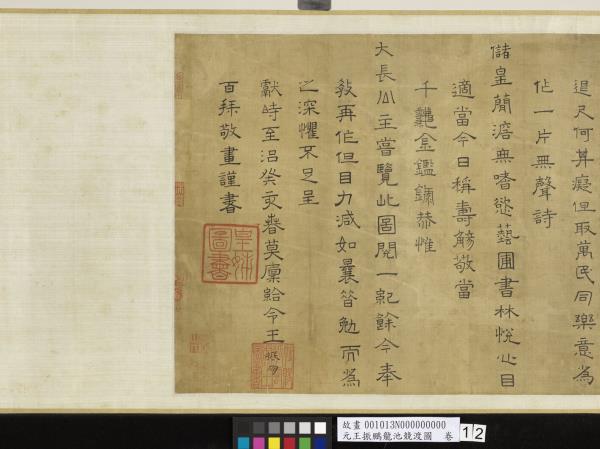 咫尺何其癡但取萬民同樂意為
作一片無聲詩
儲皇簡澹無嗜慾藝圃書林悅心目
適當今日稱壽觴敬當
千龝金鑑鏽恭惟
大長公主嘗覽此圖閱一紀餘今奉
教再作但目力減如曩昔勉而為
之深懼不足呈
獻時至治癸亥春莫廩給令王
振鵬
百拜敬畫謹書
皇姊圖書
故畫 001013N000000000
元王振鵬龍池競渡圖 卷
12